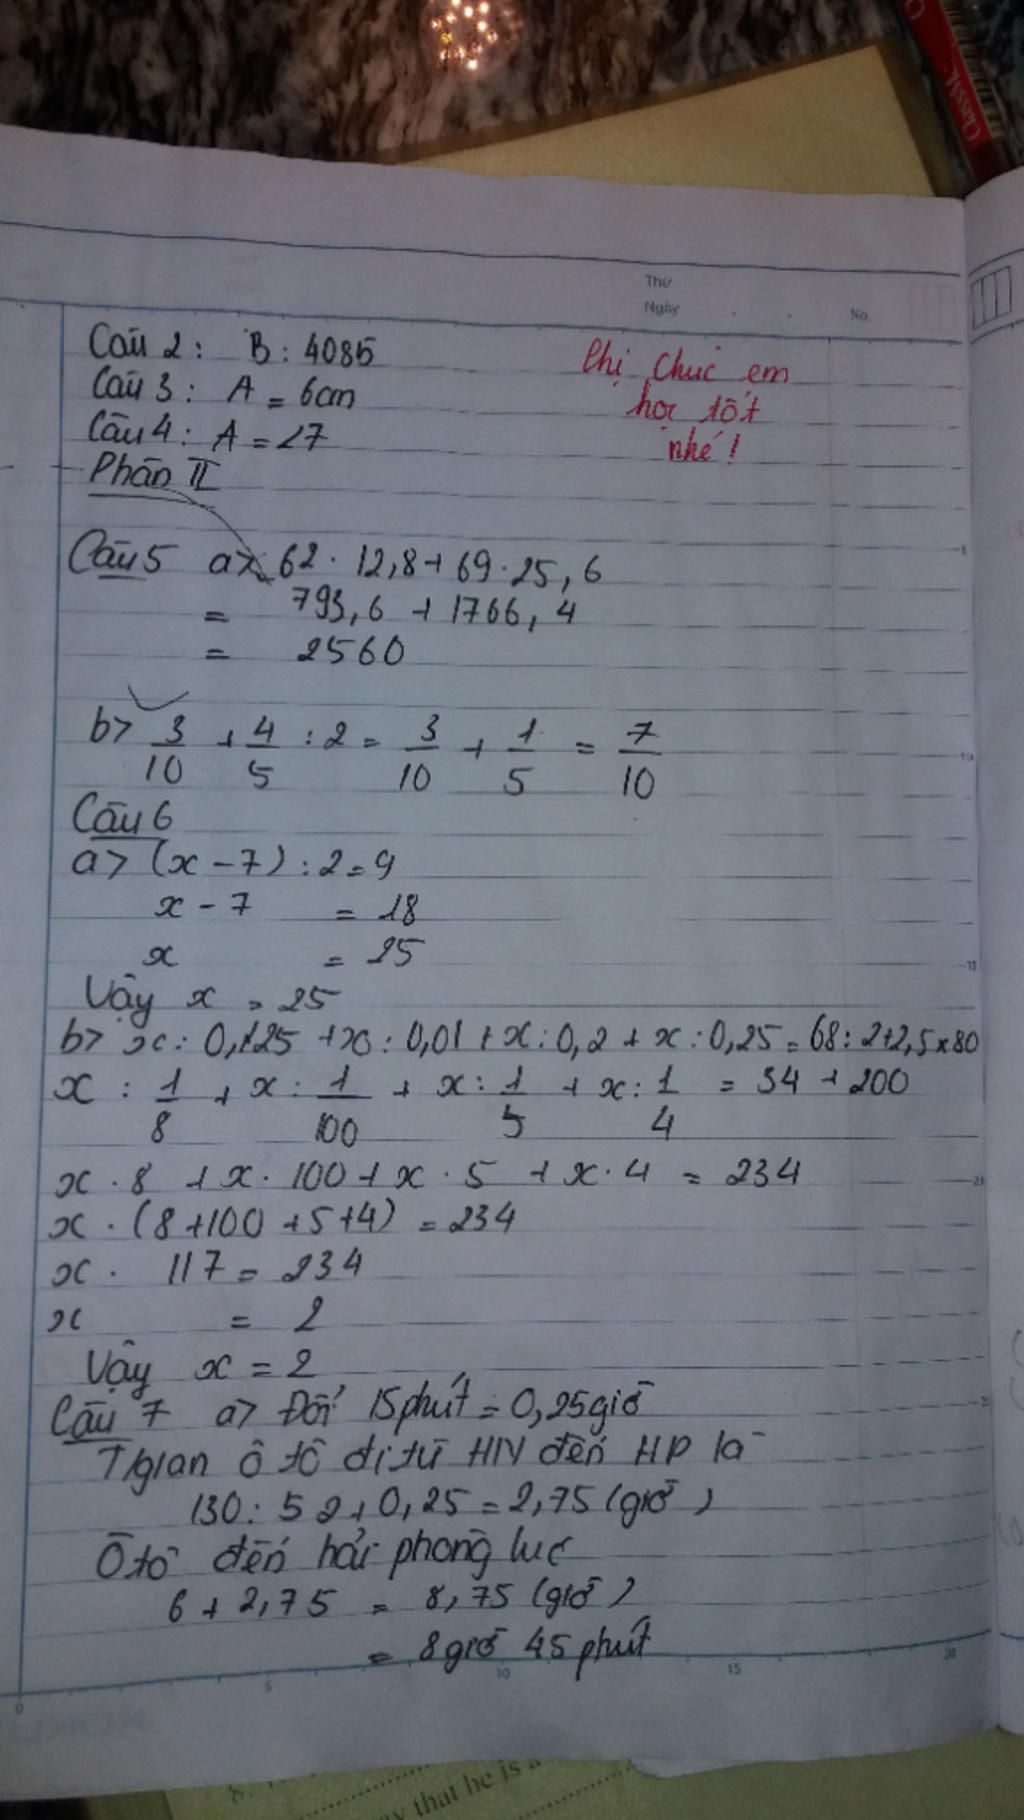 Classic
Thứ
Ngày
No.
Câu 2 : B : 4085
Câu 3 : A = 6cm
Câu 4 : A = 27
Phần II
Chị chúc em
học tốt
nhé !
Câu 5 a> 62 . 12,8 + 69 . 25,6
= 793,6 + 1766,4
= 2560
b> 3/10 + 4/5 : 2 = 3/10 + 1/5 = 7/10
Câu 6
a> (x - 7) : 2 = 9
x - 7 = 18
x = 25
Vậy x = 25
b> x : 0,125 + x : 0,01 + x : 0,2 + x : 0,25 = 68 : 2 + 2,5 x 80
x : 1/8 + x : 1/100 + x : 1/5 + x : 1/4 = 34 + 200
x . 8 + x . 100 + x . 5 + x . 4 = 234
x . (8 + 100 + 5 + 4) = 234
x . 117 = 234
x = 2
Vậy x = 2
Câu 7 a> Đổi 15 phút = 0,25 giờ
T/gian ô tô đi từ HN đến HP là
130 : 52 + 0,25 = 2,75 (giờ)
Ô tô đến hải phòng lúc
6 + 2,75 = 8,75 (giờ)
= 8 giờ 45 phút
5
10
15
20
that he is a